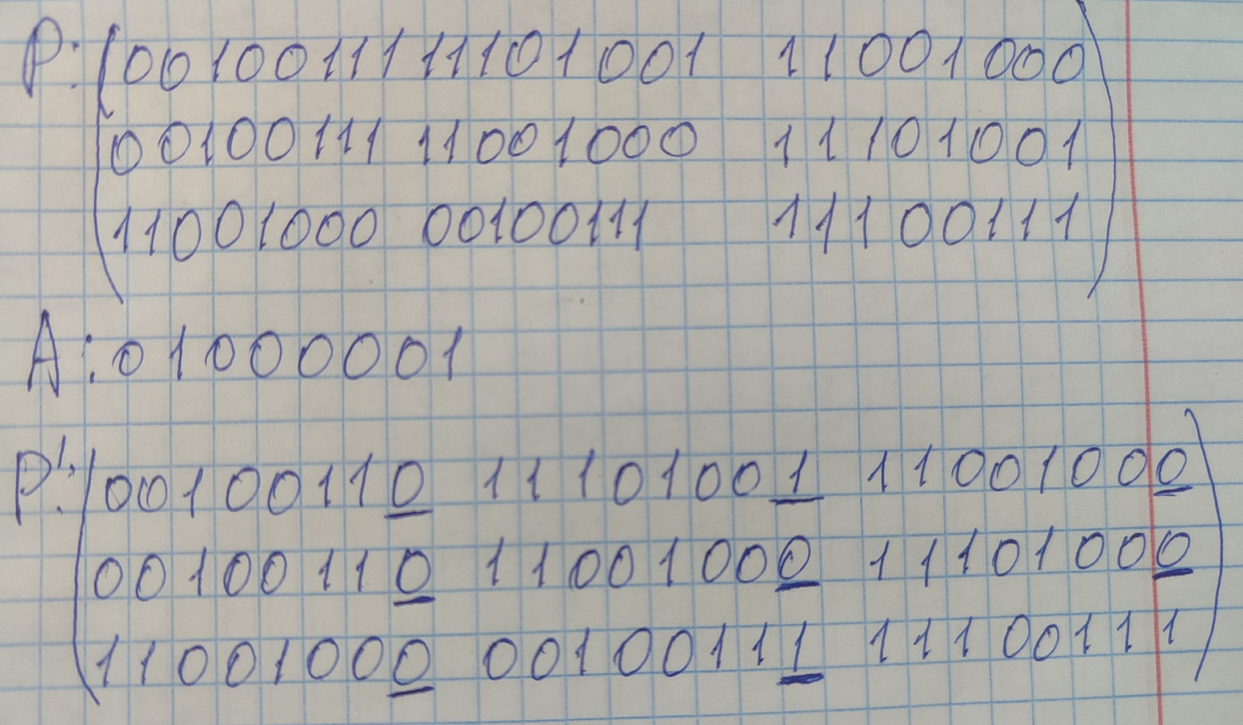 P: (00100111 11101001 11001000
00100111 11001000 11101001
11001000 00100111 11100111)
A: 01000001
P': (00100110 11101001 11001000
00100110 11001000 11101000
11001000 00100111 11100111)